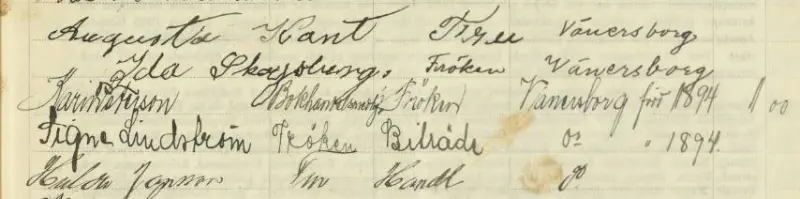 Augusta Kant Fru Vänersborg
Ida Skagsbung. Fröken Vänersborg
Karin Peterson Fröken Vänersborg född 1894 11 00
Signe Lindström Fröken Biträde do " 1894.
Hulda Jonsson Fru Handl do